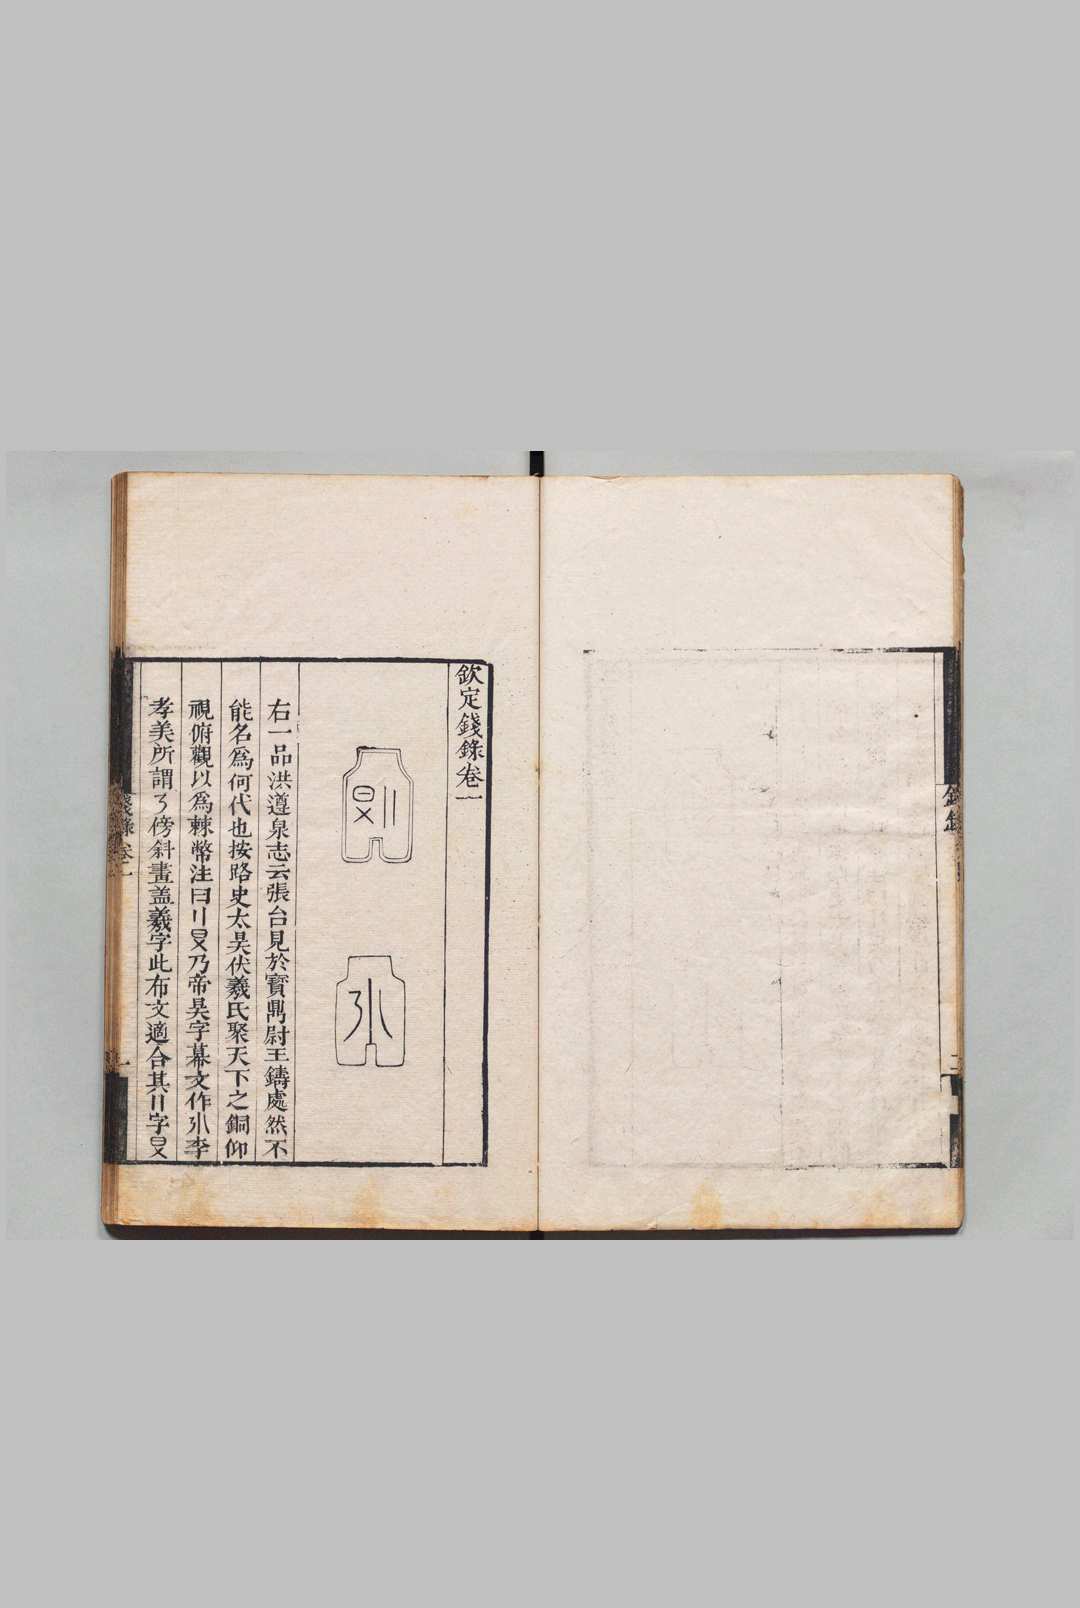 欽定錢錄卷一
右一品洪遵泉志云張台見於寶鼎尉王鑄處然不
能名爲何代也按路史太昊伏羲氏聚天下之銅仰
視俯觀以爲棘幣注曰〢昊乃帝昊字幕文作㣺李
孝美所謂了傍斜畫盖羲字此布文適合其〢字
錢錄 卷一
一